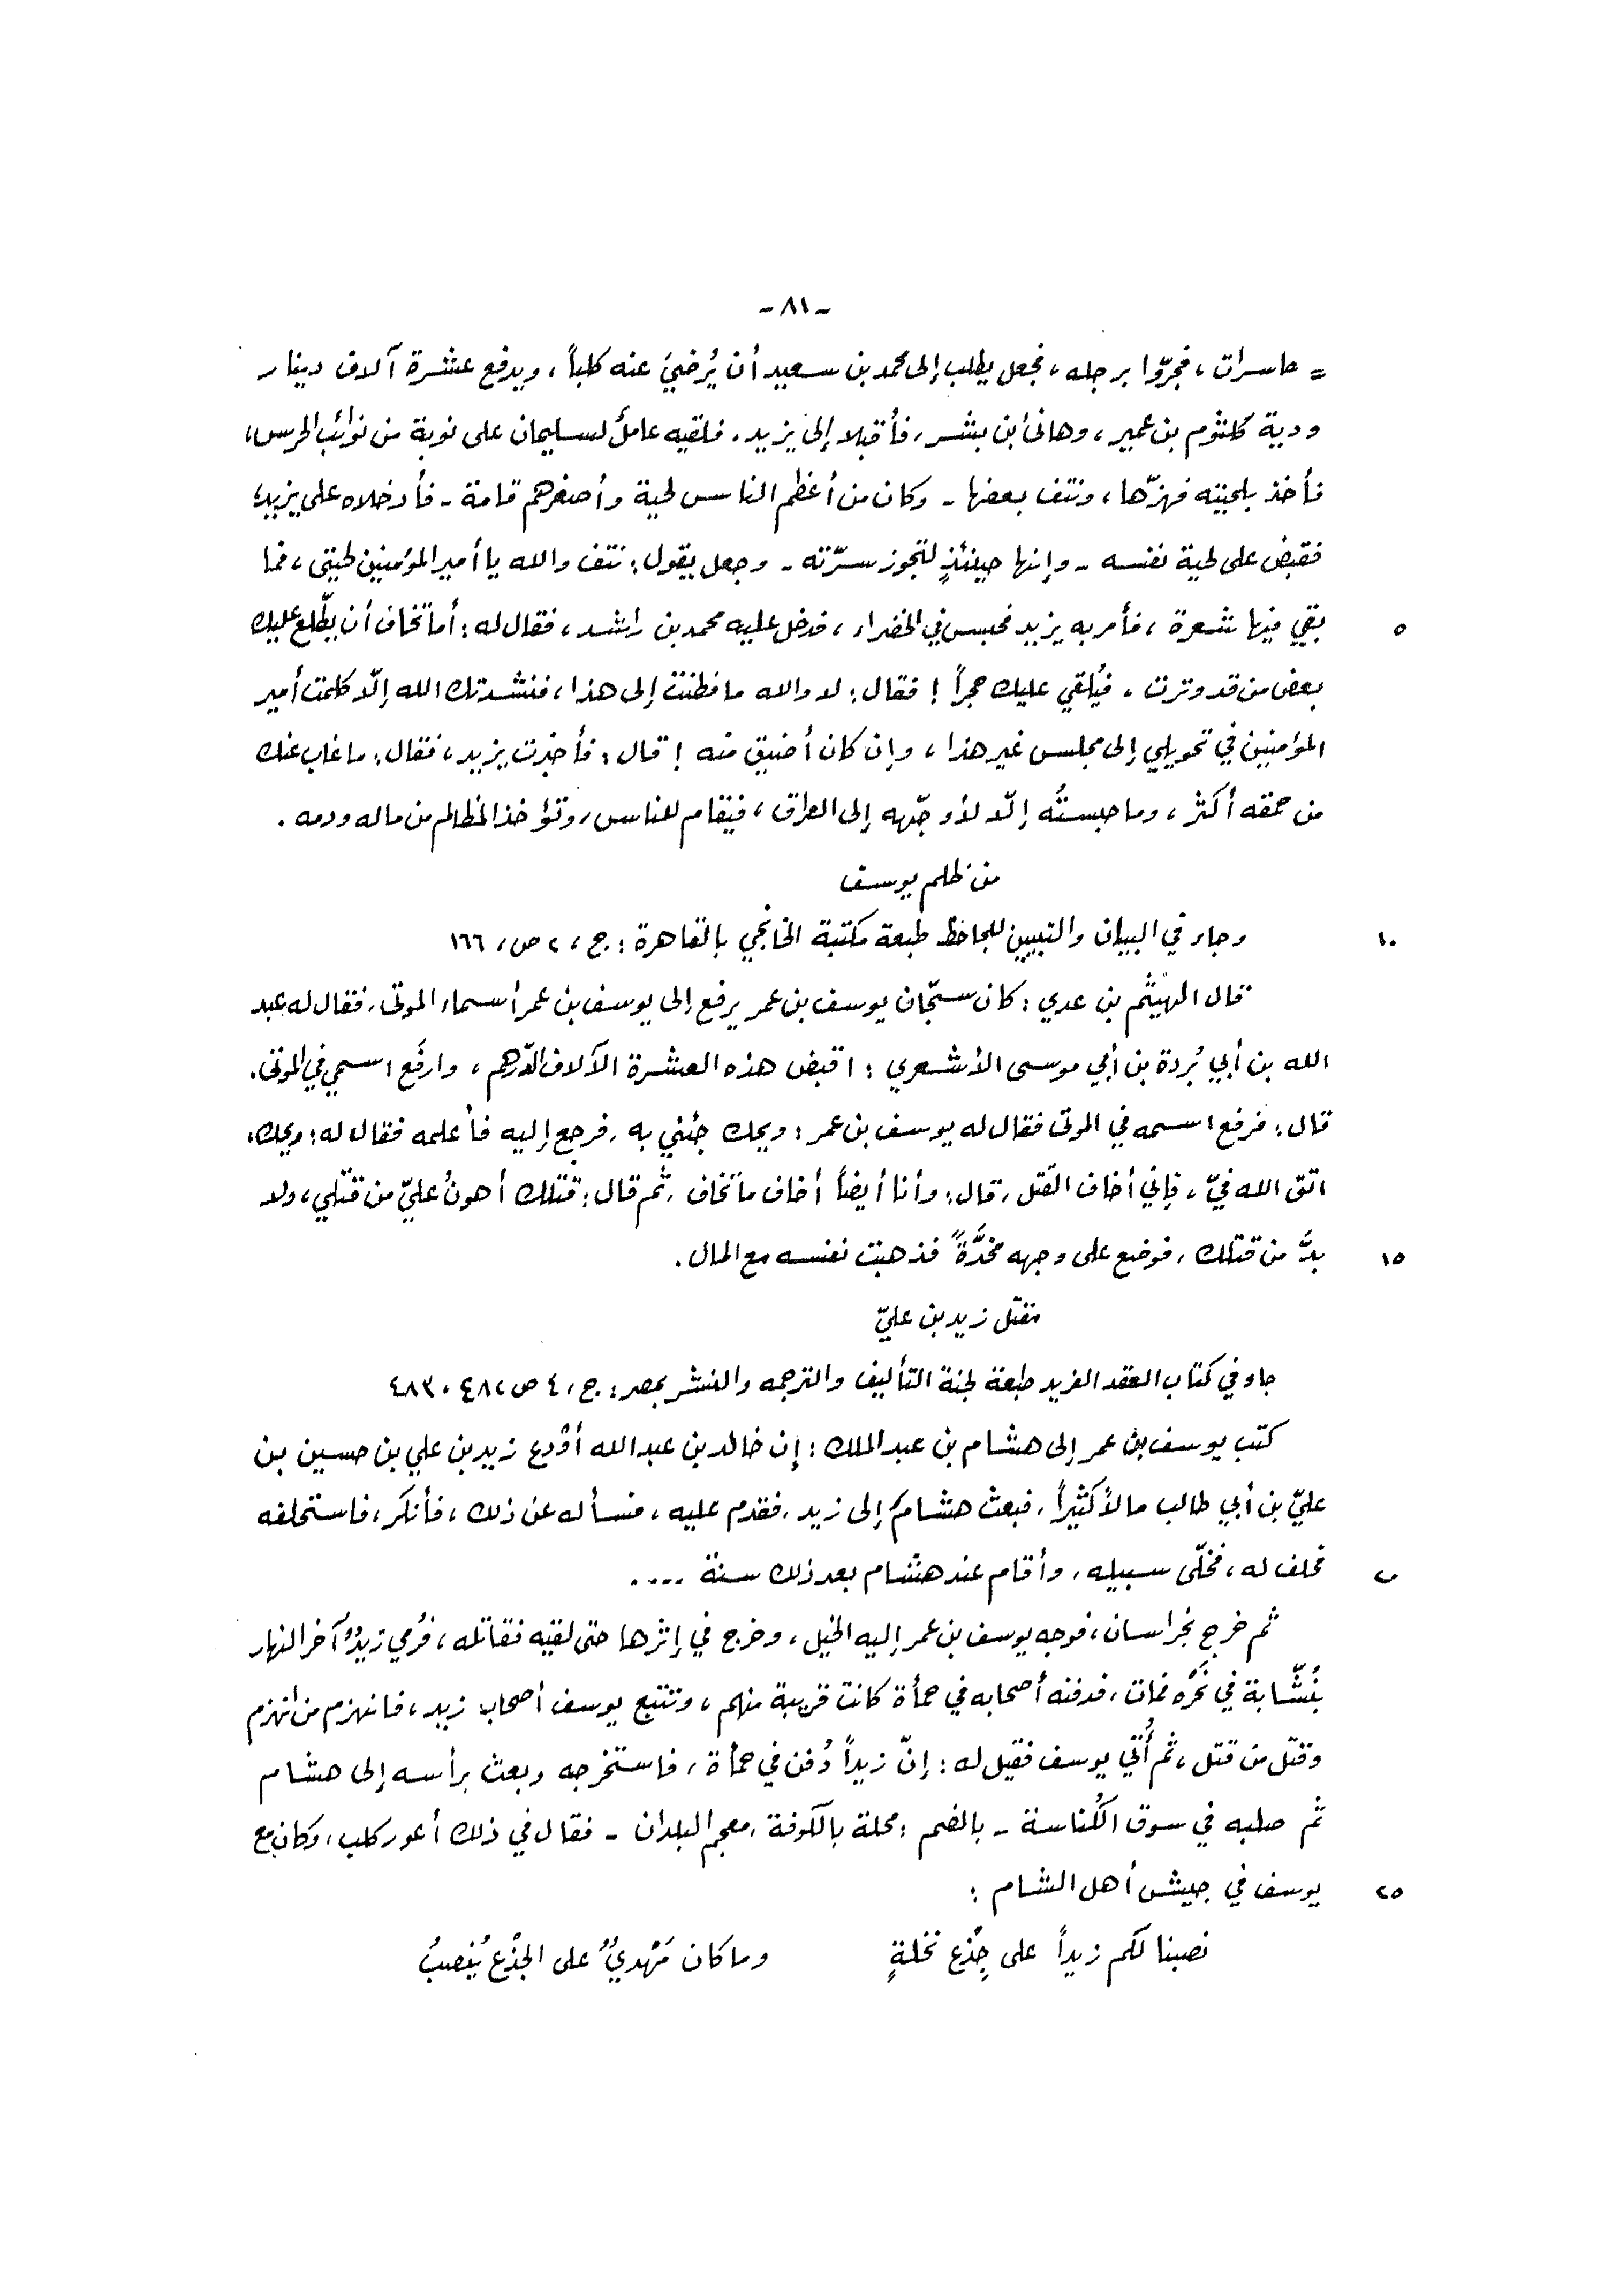 -٨١-
= حاسرات، فجرّوا برجله، فجعل يطلب إلى محمد بن سعيد أن يُرضيَ عنه كلباً، ويدفع عشرة آلاف دينار
ودية كلثوم بن عمير، وهانئ بن بشر، فأقبلا إلى يزيد. فلقيه عاملٌ لسليمان على نوبة من نوائب الحرس،
فأخذ بلحيته فهزّها، ونتف بعضها - وكان من أعظم الناس لحية وأصغرهم قامة - فأدخلاه على يزيد،
فقبض على لحية نفسه - وإنها حينئذٍ لتجوز سرّته - وجعل يقول: نتف والله يا أمير المؤمنين لحيتي، فما
بقي فيها شعرة، فأمر به يزيد فحبس في الخضراء، فدخل عليه محمد بن راشد، فقال له: أما تخاف أن يطّلع عليك
٥
بعض من قد وترت، فيُلقي عليك حجراً! فقال: لا والله ما فطنت إلى هذا، فنشدتك الله إلّا كلمت أمير
المؤمنين في تحويلي إلى مجلس غير هذا، وإن كان أضيق منه! قال: فأخبرت يزيد، فقال: ما غاب عنك
من حمقه أكثر، وما حبستُه إلّا لأوجّهه إلى العراق، فيقام للناس، وتؤخذ المظالم من ماله ودمه.
من ظلم يوسف
وجاء في البيان والتبيين للجاحظ طبعة مكتبة الخانجي بالقاهرة: ج، ٢ ص، ١٦٦
١٠
قال الهيثم بن عدي: كان سجّان يوسف بن عمر يرفع إلى يوسف بن عمر أسماء الموتى، فقال له عبد
الله بن أبي بُردة بن أبي موسى الأشعري: اقبض هذه العشرة الآلاف الدّرهم، وارفَع اسمي في الموتى.
قال: فرفع اسمه في الموتى فقال له يوسف بن عمر: ويحك جئني به، فرجع إليه فأعلمه فقال له: ويحك،
اتق الله فيّ، فإني أخاف القتل، قال: وأنا أيضاً أخاف ما تخاف، ثم قال: قتلك أهونُ عليّ من قتلي، ولا
بدَّ من قتلك، فوضع على وجهه مخدَّةً فذهبت نفسه مع المال.
١٥
مقتل زيد بن عليّ
جاء في كتاب العقد الفريد طبعة لجنة التأليف والترجمه والنشر بمصر: ج، ٤ ص، ٤٨٢، ٤٨٣
كتب يوسف بن عمر إلى هشام بن عبد الملك: إن خالد بن عبد الله أوْدع زيد بن علي بن حسين بن
عليّ بن أبي طالب مالاً كثيراً، فبعث هشامٌ إلى زيد، فقدم عليه، فسأله عن ذلك، فأنكر، فاستحلفه
فحلف له، فخلّى سبيله، وأقام عند هشام بعد ذلك سنة ....
٢٠
ثم خرج بخراسان، فوجه يوسف بن عمر إليه الخيل، وخرج في إثرها حتى لقيه فقاتله، فرُمي زيدٌ آخر النهار
بنُشّابة في نَحْره فمات، فدفنه أصحابه في حمأة كانت قريبة منهم، وتتبع يوسف أصحاب زيد، فانهزم من انهزم
وقتل من قتل، ثم أُتي يوسف فقيل له: إنّ زيداً دُفن في حمأة، فاستخرجه وبعث برأسه إلى هشام
ثم صلبه في سوق الكُناسة - بالضم: محلة بالكوفة، معجم البلدان - فقال في ذلك أعور كلب، وكان مع
يوسف في جيش أهل الشام:
٢٥
نصبنا لكم زيداً على جِذْع نخلةٍ    وما كان مَهْديٌّ على الجذْع يُنْصبُ